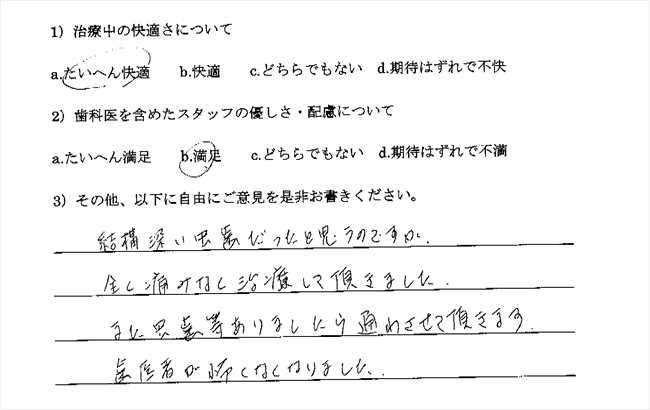 1）治療中の快適さについて
a.たいへん快適 b.快適 c.どちらでもない d.期待はずれで不快
2）歯科医を含めたスタッフの優しさ・配慮について
a.たいへん満足 b.満足 c.どちらでもない d.期待はずれで不満
3）その他、以下に自由にご意見を是非お書きください。
結構深い虫歯だったと思うのですが、
全く痛みなく治療して頂きました。
また虫歯等ありましたら通わさせて頂きます。
歯医者が怖くなくなりました。